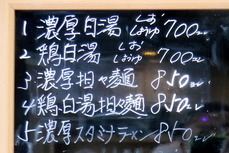 1 濃厚白湯 しお しょうゆ 700コレ
2 鶏白湯 しお しょうゆ 700コレ
3 濃厚担々麺 850コレ
4 鶏白湯担々麺 850コレ
5 濃厚スタミナラーメン 850コレ